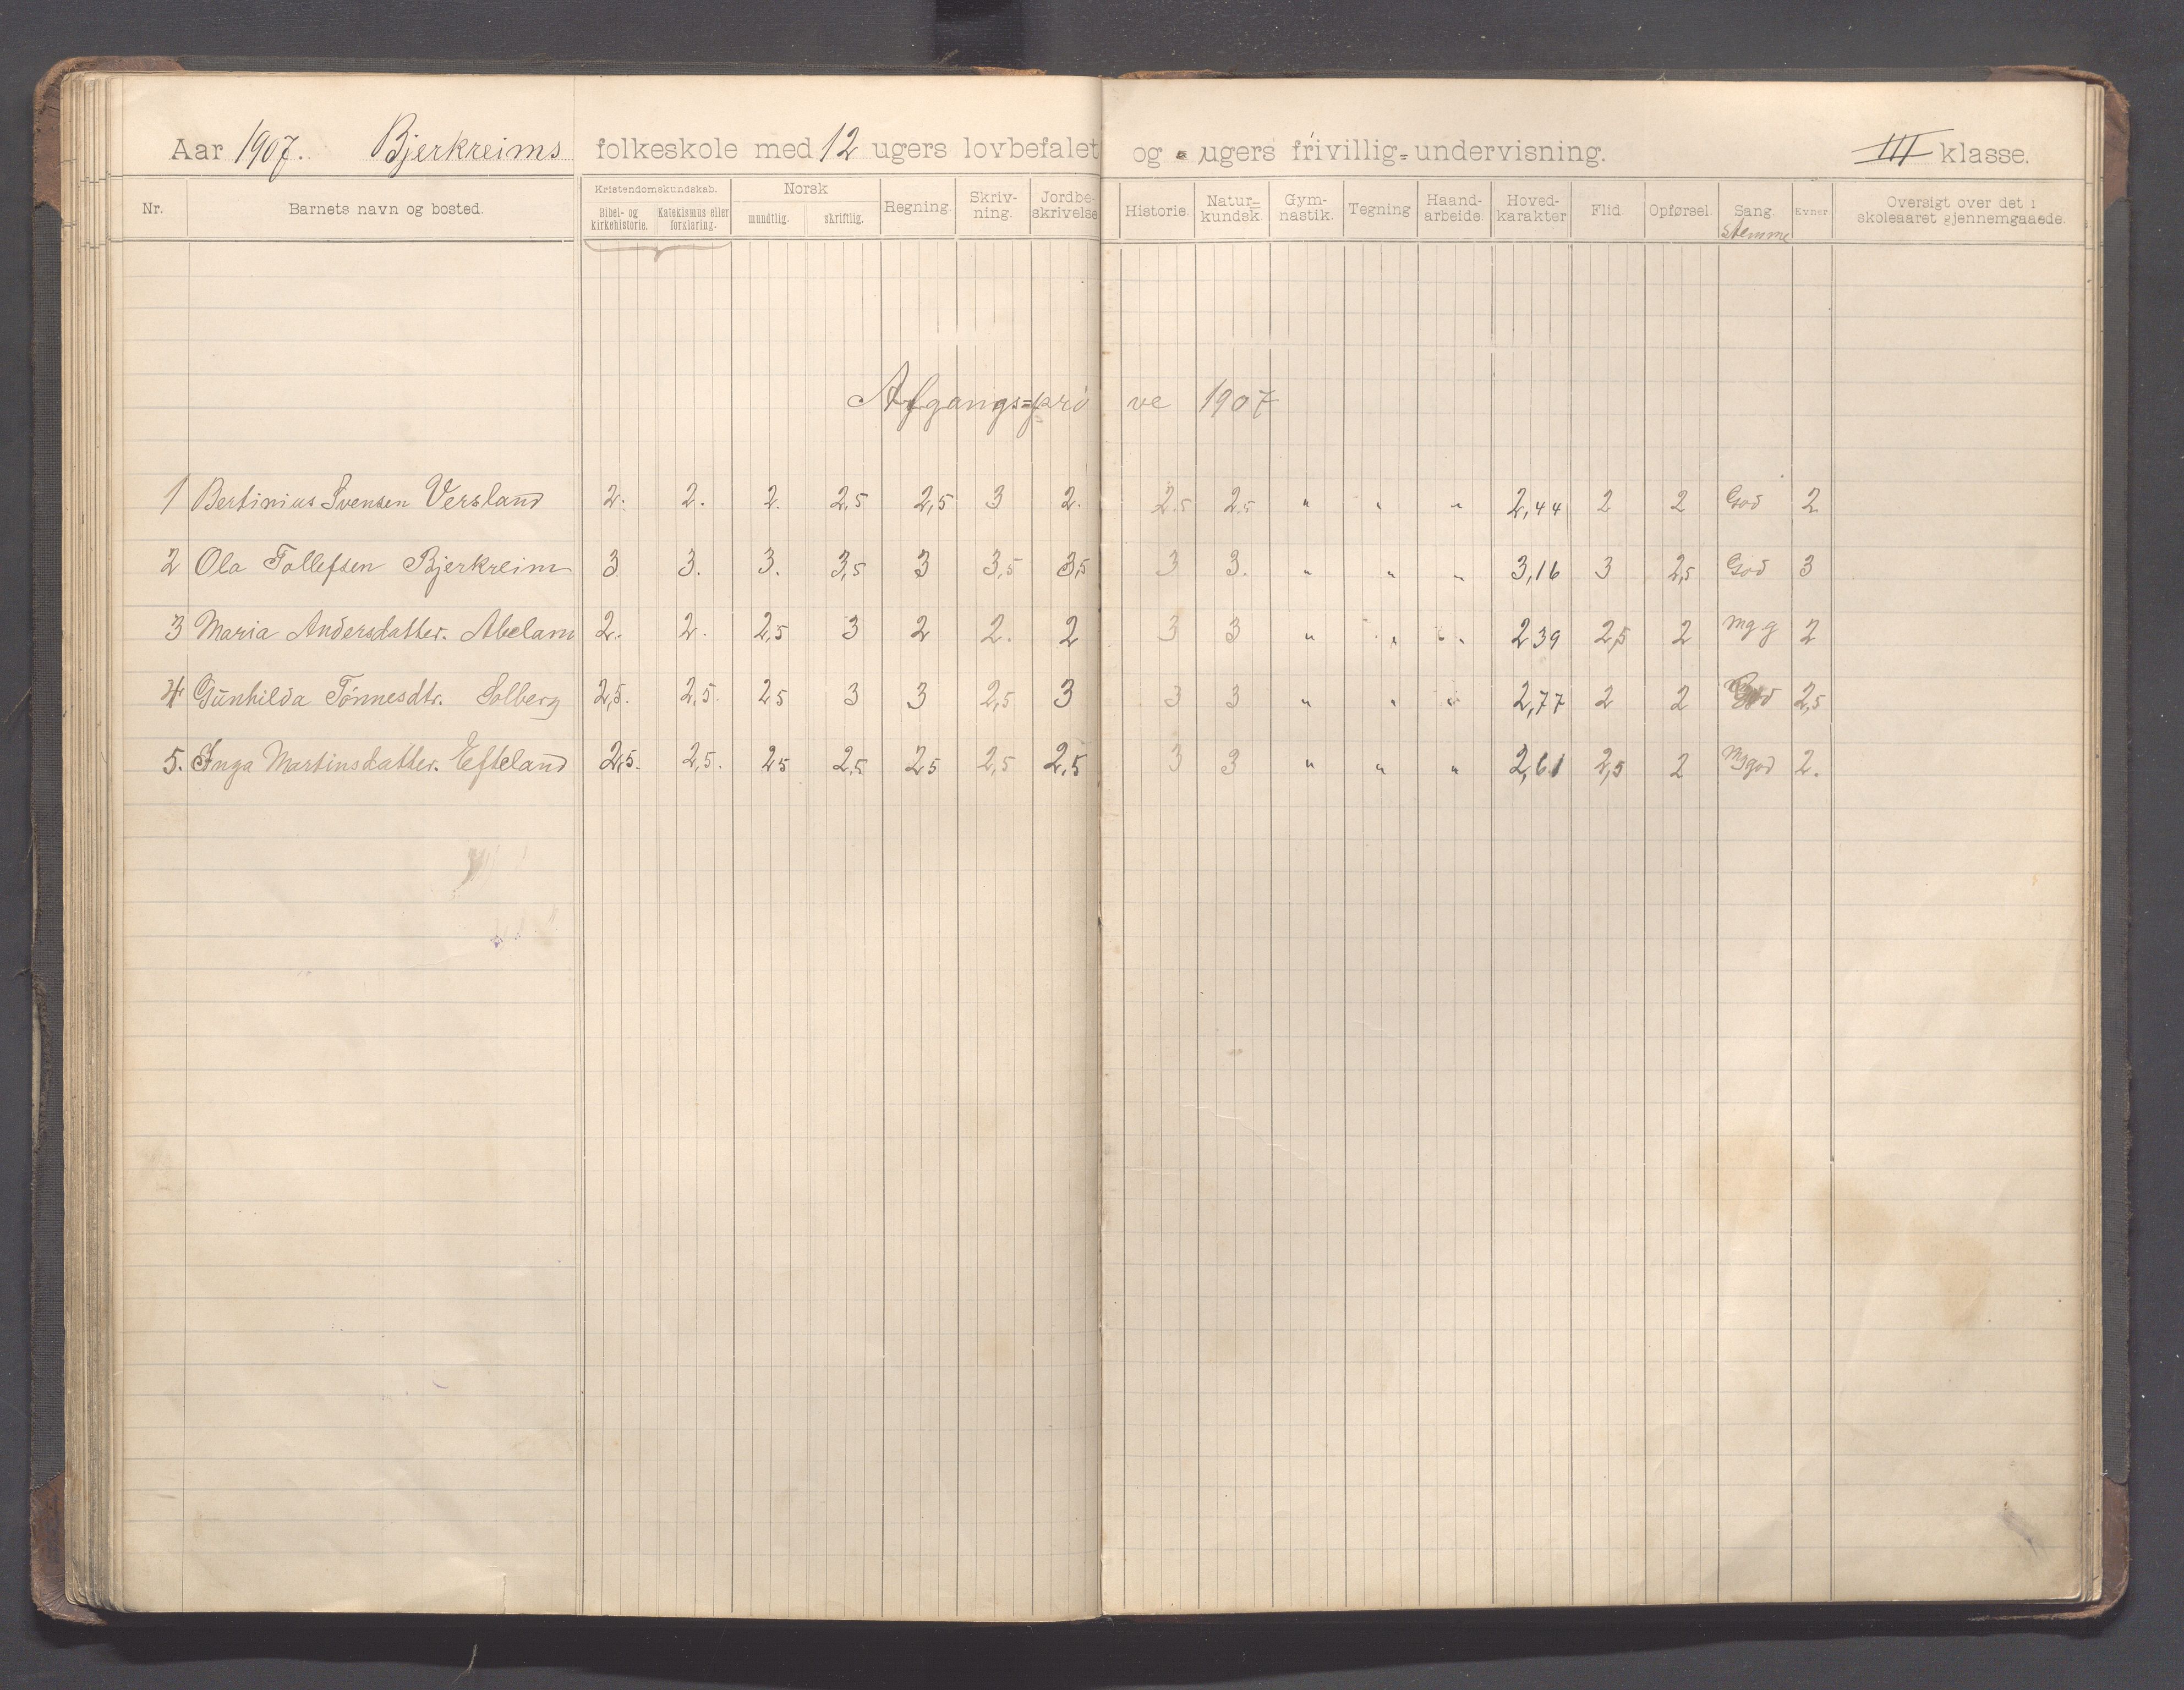 Aar 1907. Bjerkreims folkeskole med 12 ugers lovbefalet og - ugers frivillig undervisning. III klasse.
Nr. Barnets navn og bosted. Kristendomskundskab. Bibel- og kirkehistorie. Katekismus eller forklaring. Norsk mundtlig. skriftlig. Regning. Skriv-ning. Jordbe-skrivelse Historie. Natur-kundsk. Gym-nastik. Tegning Haand-arbeide. Hoved-karakter Flid. Opførsel. Sang. stemme Evner Oversigt over det i skoleaaret gjennemgaaede.
Afgangs=prøve 1907
1 Bertinius Svensen Versland 2. 2. 2. 2,5 2,5 3 2. 2.5 2,5 " " " 2,44 2 2 God 2
2 Ola Tollefsen Bjerkreim 3 3. 3. 3,5 3 3,5 3,5 3 3. " " " 3,16 3 2,5 God 3
3 Maria Andersdatter. Abeland 2. 2. 2,5 3 2 2. 2 3 3 " " " 2 39 2,5 2 mg g 2
4 Gunhilda Tønnesdtr. Solberg 2,5. 2,5. 25 3 3 2,5 3 3 3 " " " 2,77 2 2 God 2,5
5. Inga Martinsdatter. Efteland 2,5. 2,5. 25 2,5 25 2,5 2,5 3 3 " " " 2,61 2,5 2 Mggod 2.